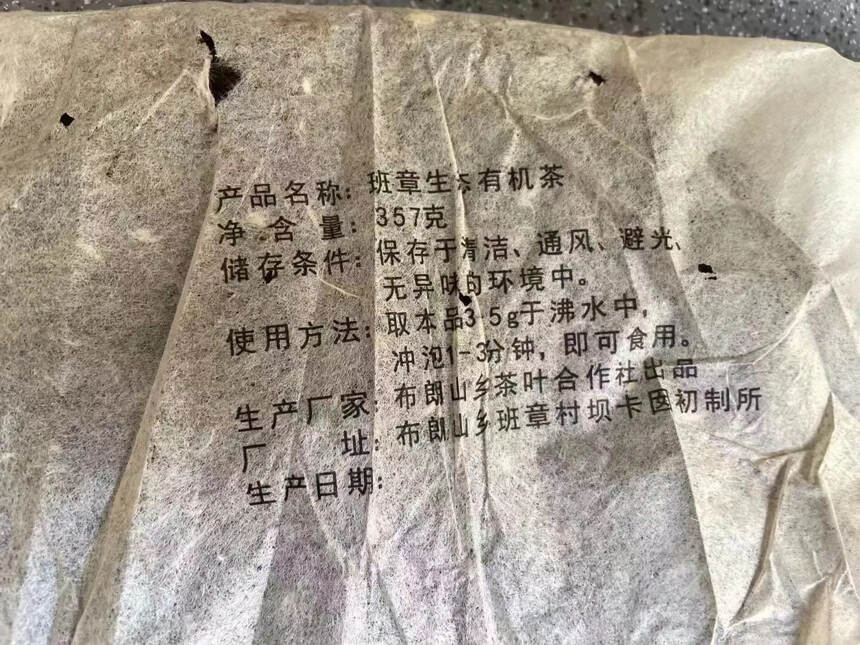 产品名称：班章生态有机茶
净含量：357克
储存条件：保存于清洁、通风、避光、
无异味的环境中。
使用方法：取本品3-5g于沸水中，
冲泡1-3分钟，即可食用。
生产厂家：布朗山乡茶叶合作社出品
厂址：布朗山乡班章村坝卡囡初制所
生产日期：